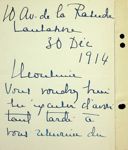 10 Av. de la Rasude
Lausanne
30 Déc
1914
Monsieur
Vous voudrez bien
m'excuser d'avoir
tant tardé à
vous